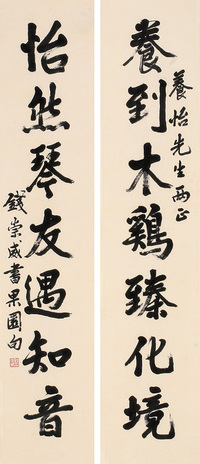 養到木鷄臻化境
養怡先生兩正
怡然琴友遇知音
錢崇威書果園句